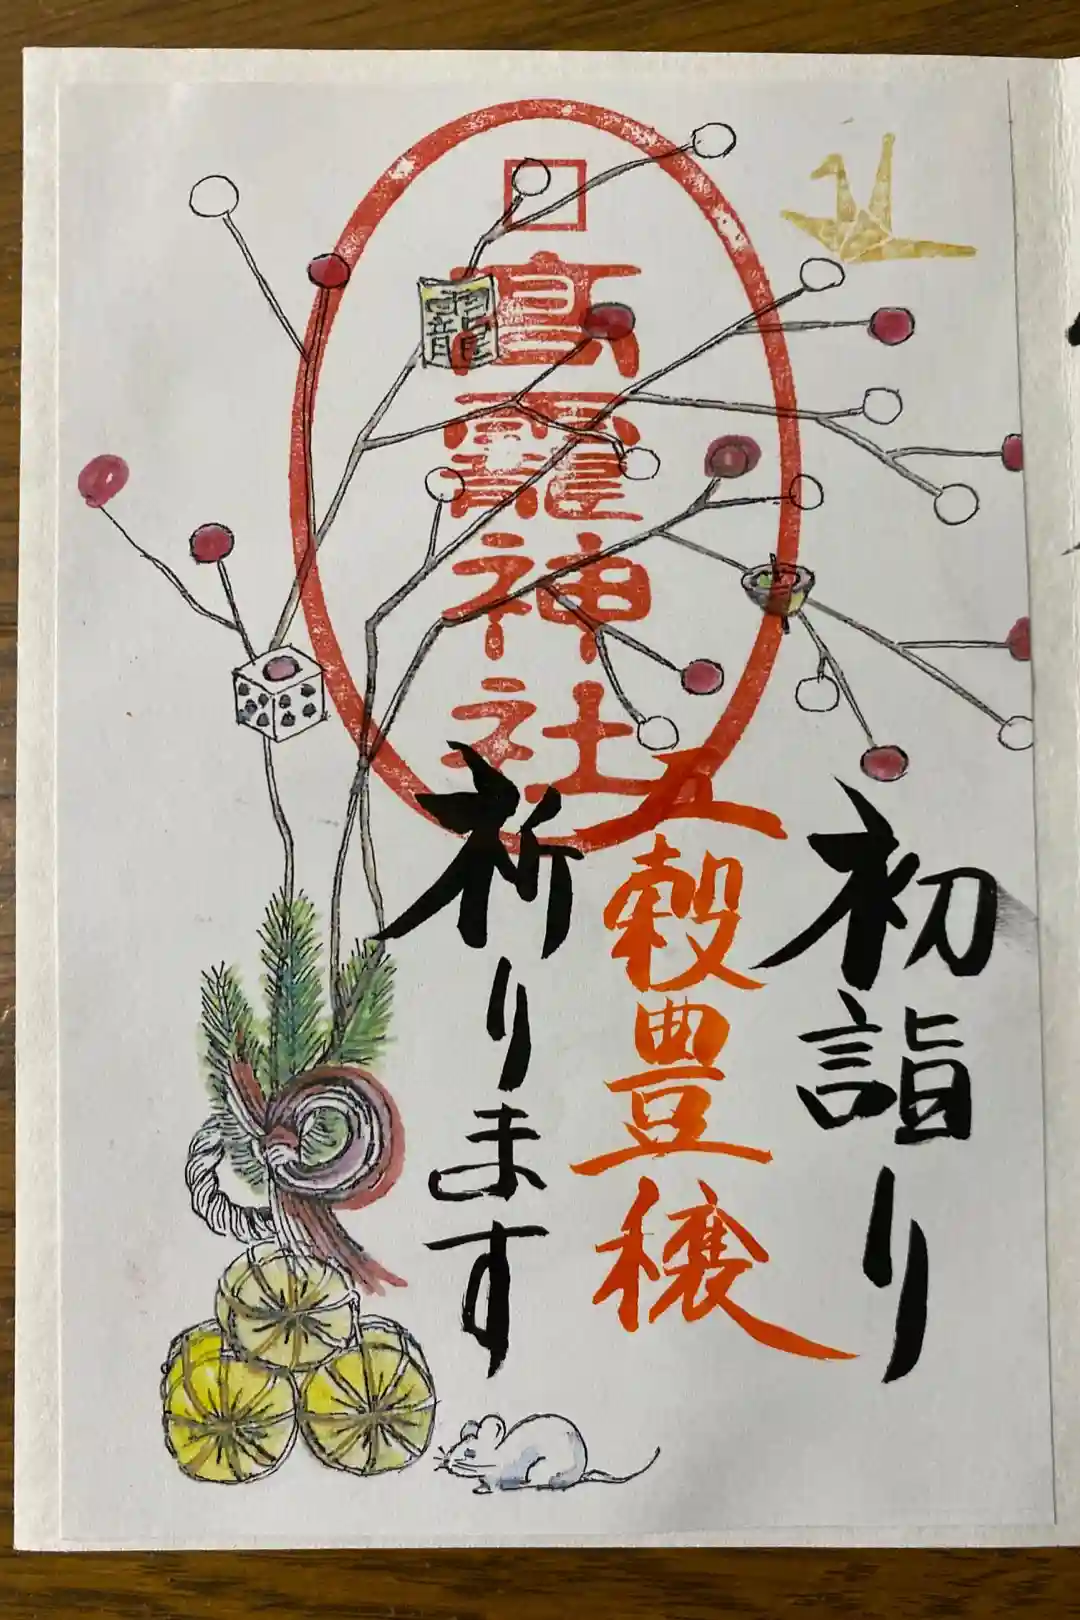 初詣り
五穀豊穣
祈ります
高靇神社